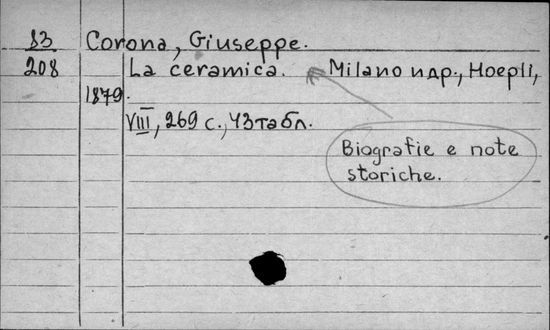 83 Corona, Giuseppe.
208 La ceramica. Milano и др., Hoepli,
1879.
VIII, 269 с., 43 табл.
Biografie e note
storiche.